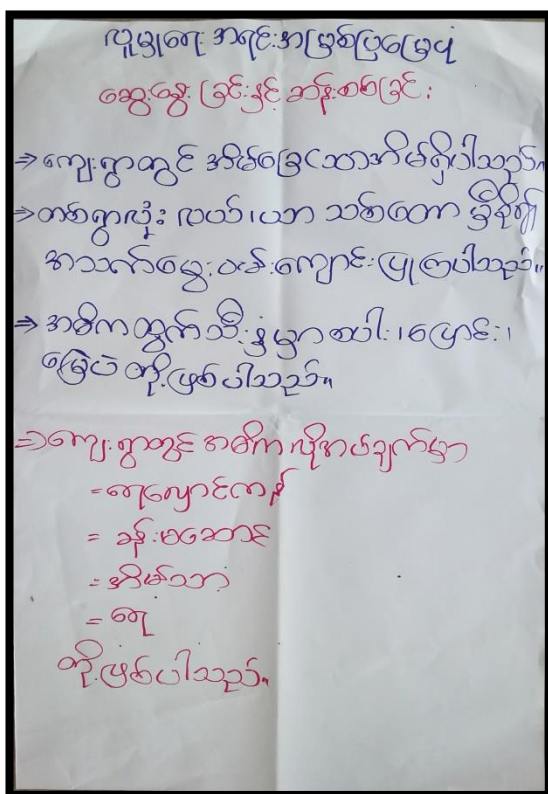 လူမှုရေး အရင်းအမြစ်ပြမြေပုံ
ဆွေးနွေးခြင်းနှင့် ဆန်းစစ်ခြင်း
⇒ ကျေးရွာတွင် အိမ်ခြေ ဘာအိမ်ရှိပါသည်။
⇒ တစ်ရွာလုံး လယ်၊ယာ သစ်တော မှီခို၍
အသက်မွေးဝမ်းကျောင်းပြုကြပါသည်။
⇒ အဓိကထွက်သီးနှံမှာ စပါး၊ပြောင်း၊
မြေပဲ တို့ဖြစ်ပါသည်။
⇒ ကျေးရွာတွင် အဓိက လိုအပ်ချက်မှာ
= ရေလှောင်ကန်
= ခန်းမဆောင်
= အိမ်သာ
= ရေ
တို့ဖြစ်ပါသည်။